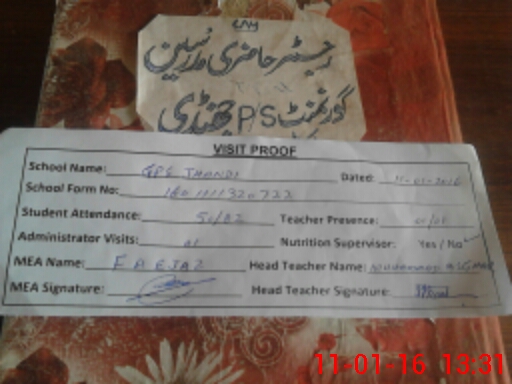 ۷۸۶
رجسٹر حاضری مدرسین
گورنمنٹ P/S جھنڈی
VISIT PROOF
School Name: GPS JHANDI Dated: 11-01-2016
School Form No:
Student Attendance: Teacher Presence:
Administrator Visits: 01 Nutrition Supervisor: Yes / No
MEA Name: F A EJAZ Head Teacher Name:
MEA Signature: Head Teacher Signature:
11-01-16 13:31